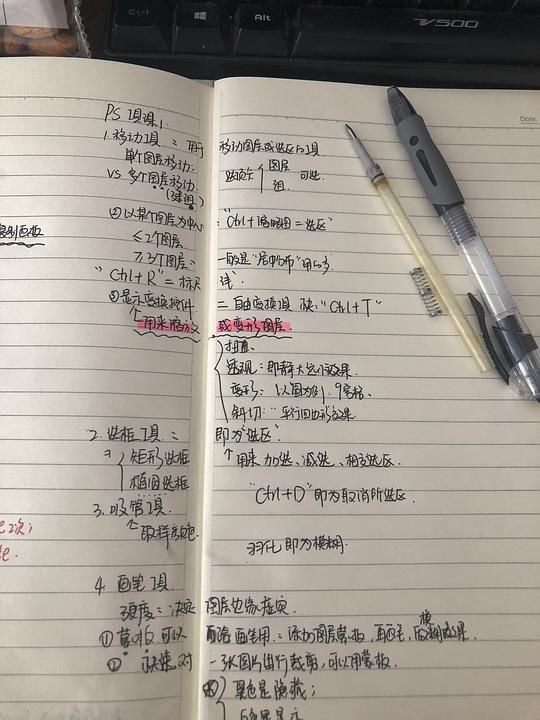 Ctrl
Alt
V500
Date.
PS 工具课1.
1. 移动工具 = 用于 移动图层或选区的工具.
单个图层移动.
VS 多个图层移动.
图层
组
可选
(建组)
①以某个图层为中心 : "Ctrl+缩略图=选区"
≤2个图层.
≥3个图层 = 一般是"居中分布"用的多
"Ctrl+R" = 标尺 线.
②显示变换控件 = 自由变换工具 快: "Ctrl+T"
↑用来 或变形图层.
扭曲.
透视: 即静大远小效果.
变形: 以图为例. 9宫格.
斜切: 平行四边形效果.
2. 选框工具 = 即为"选区".
矩形选框
椭圆选框
↑用来 加选、减选、相交选区.
"Ctrl+D" 即为取消所选区.
3. 吸管工具.
↑取样颜色.
羽化即为模糊.
4. 画笔工具.
硬度 = 决定 图层边缘虚实
① 蒙板可以 配合画笔用 = 添加图层蒙板, 模糊效果.
② 快速对 一张图片进行裁剪, 可以用蒙板.
黑色是隐藏;
白色是显示